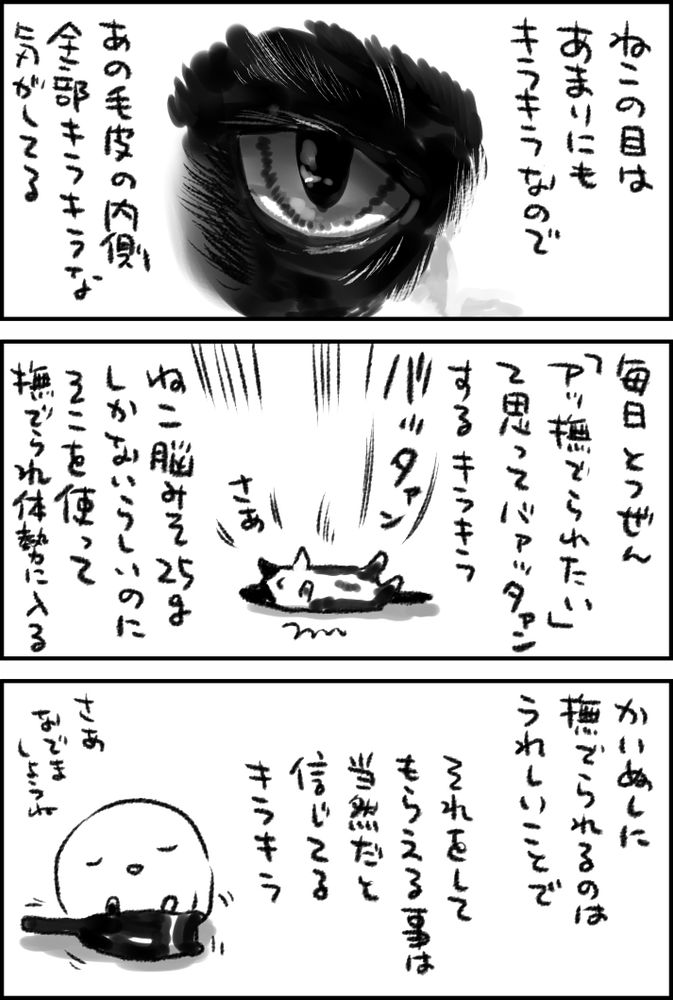 ねこの目は
あまりにも
キラキラなので
あの毛皮の内側
全部キラキラな
気がしてる
毎日とつぜん
「アッ撫でられたい」
て思ってバァッタァン
するキラキラ
バッタァン
さあ
ねこ脳みそ25g
しかないらしいのに
そこを使って
撫でられ体勢に入る
かいぬしに
撫でられるのは
うれしいことで
それをして
もらえる事は
当然だと
信じてる
キラキラ
さあ
なでま
しょうね